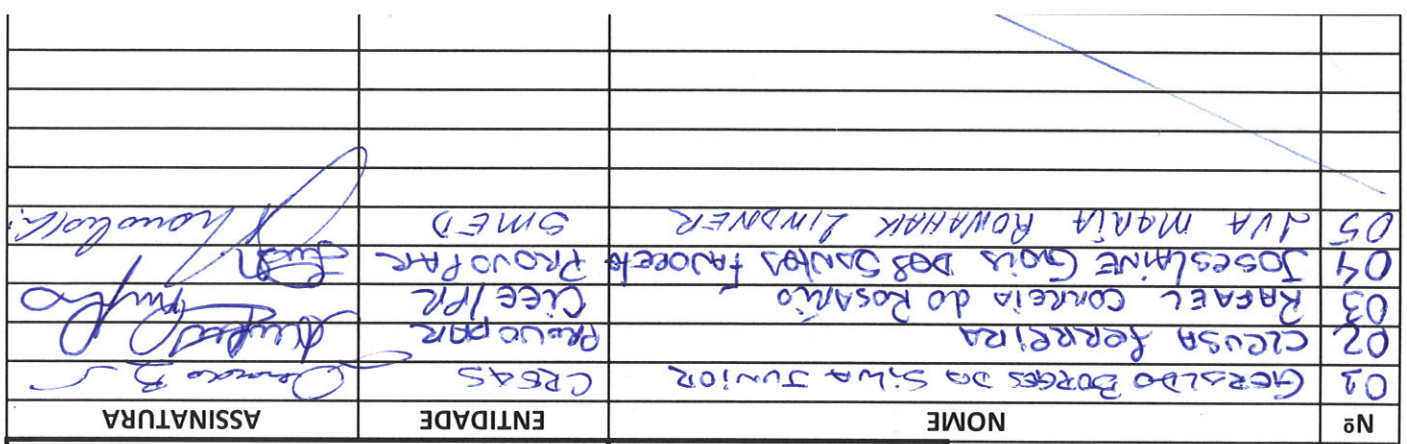 Nº NOME ENTIDADE ASSINATURA
01 GERALDO BORGES DA SILVA JUNIOR CREAS
02 CLEUSA FERREIRA PROVOPAR
03 RAFAEL CORREIA do ROSARIO CIEE/PR
04 JOSESLAINE GOIS DOS SANTOS FAVORETO PROVOPAR
05 IVA MARIA SMED